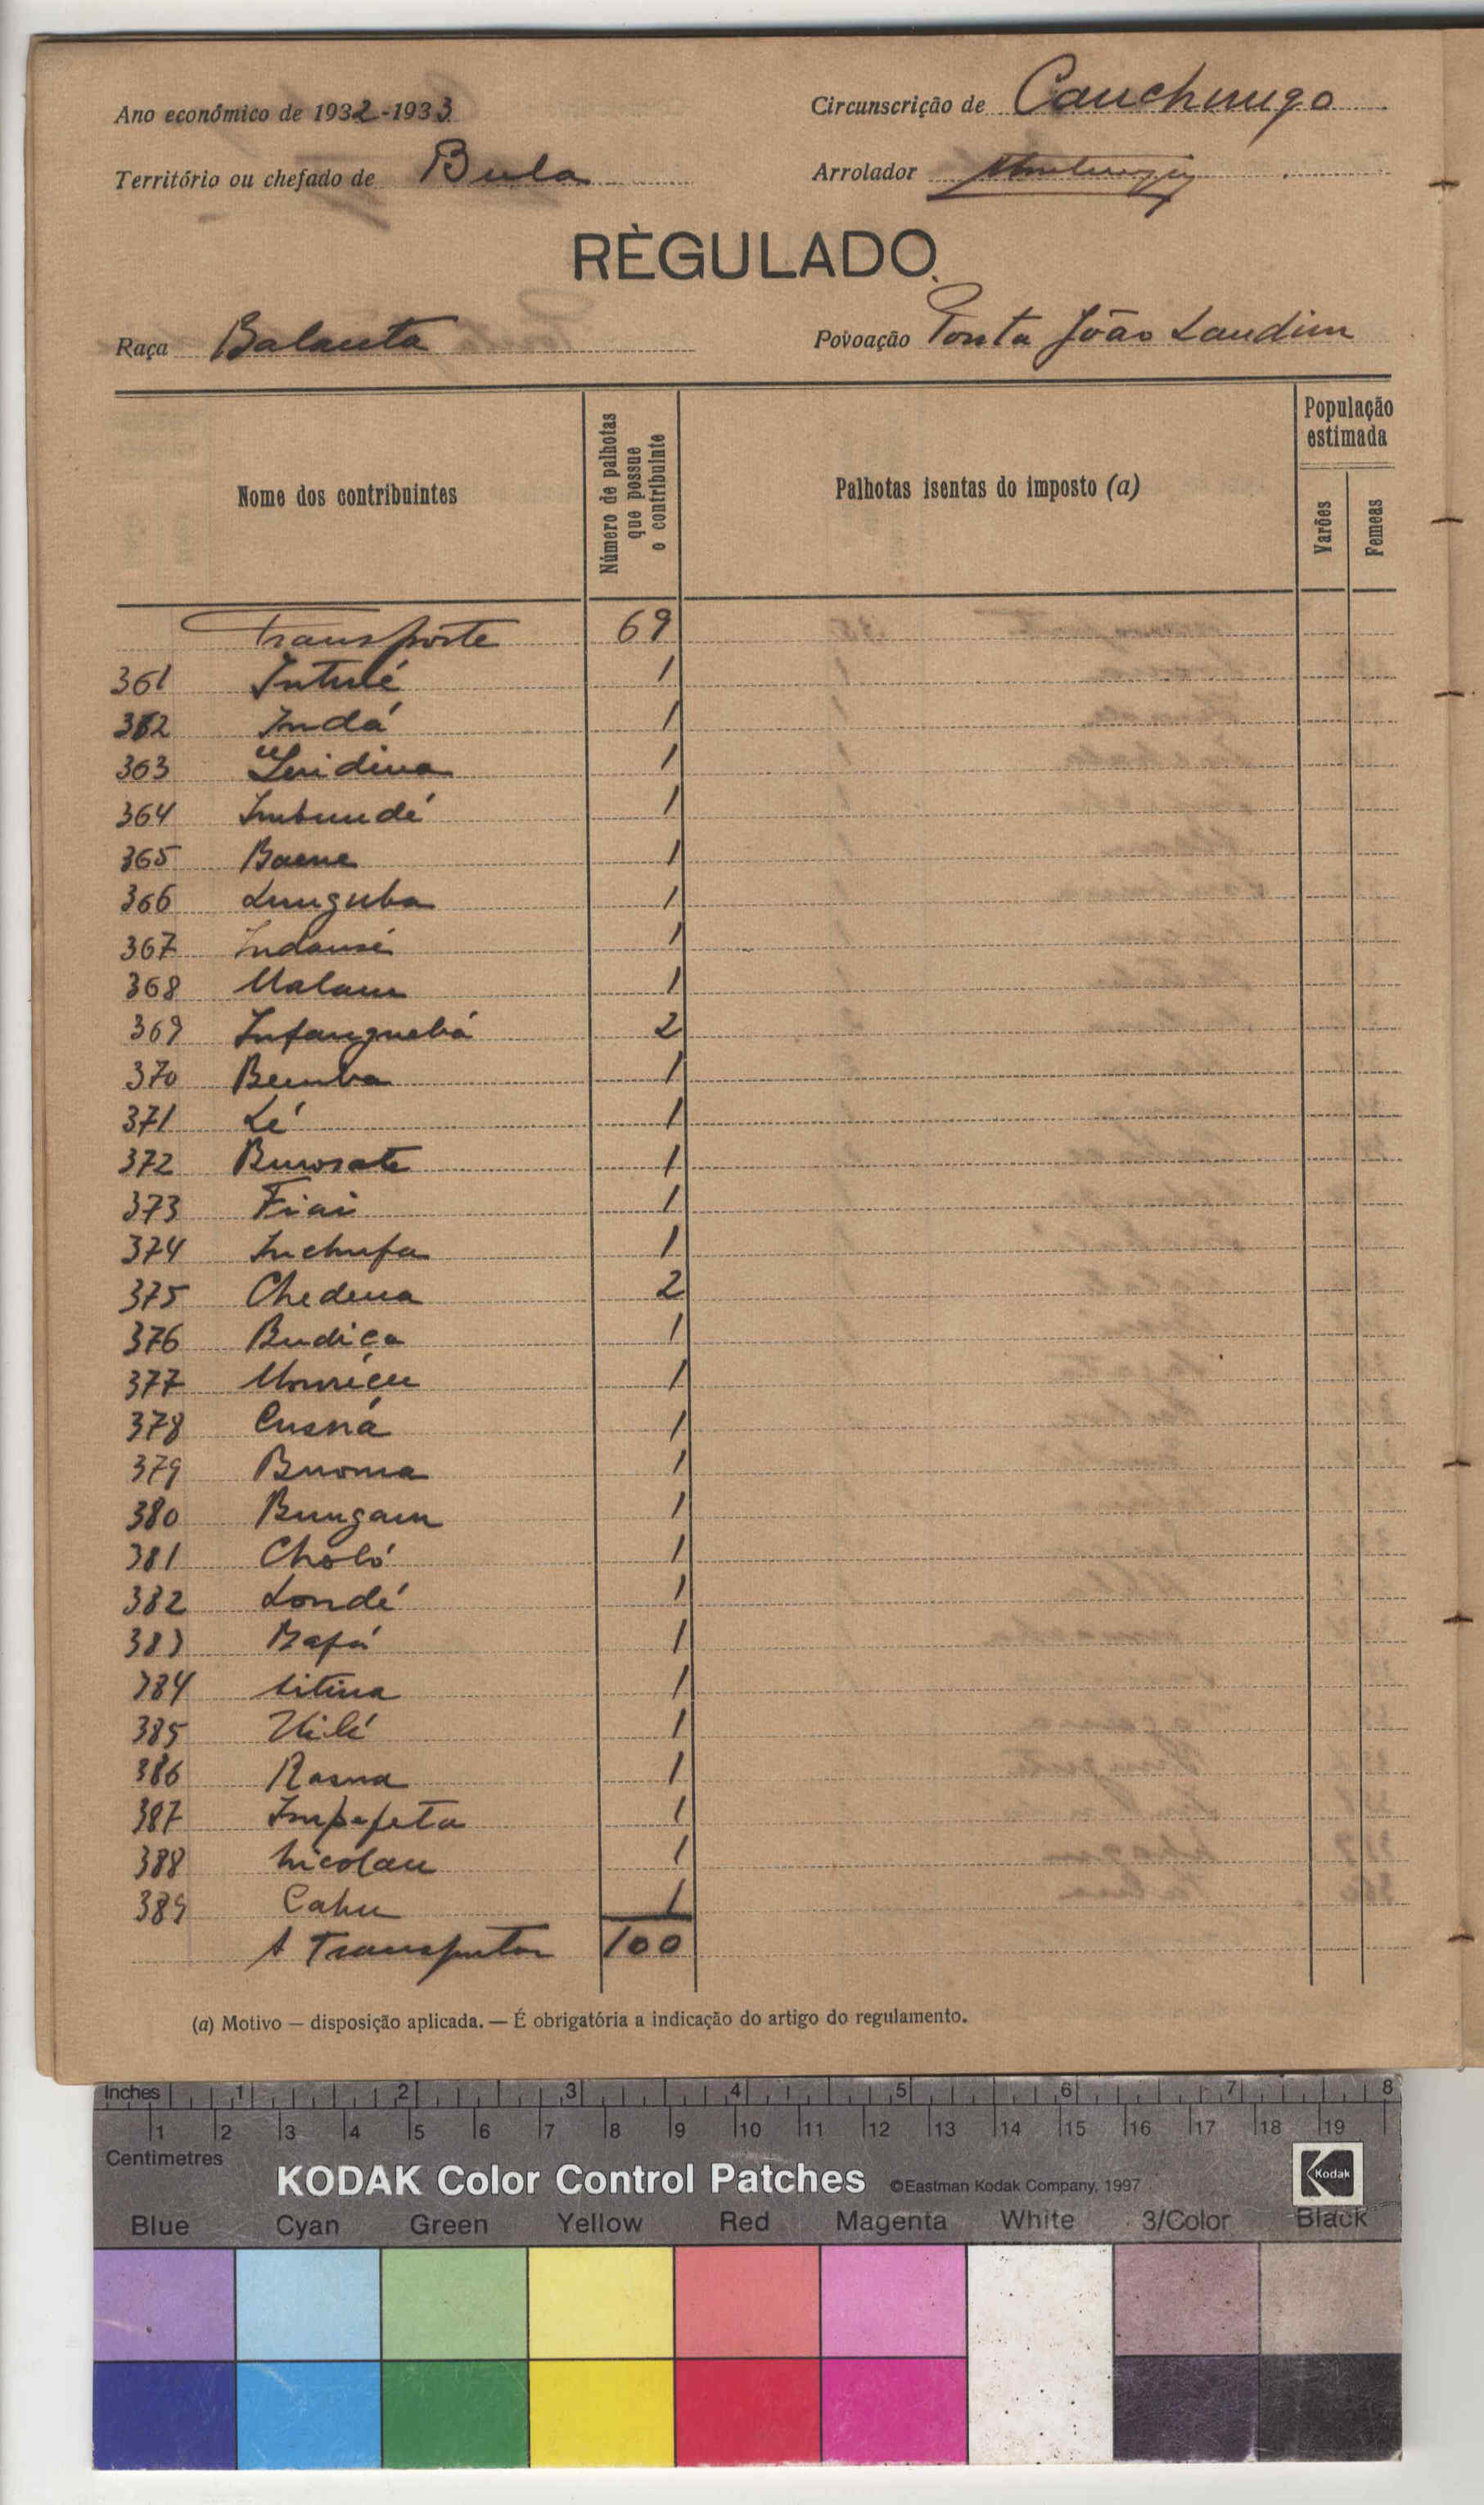 Ano económico de 1932-1933
Circunscrição de Canchungo
Território ou chefado de Bula
Arrolador
RÈGULADO
Raça Balanta
Povoação Ponta João Landim
Nome dos contribuintes
Número de palhotas que possue o contribuinte
Palhotas isentas do imposto (a)
População estimada
Varões
Femeas
Transporte 69
361 Intulé 1
362 Indá 1
363 1
364 Imbundé 1
365 Baene 1
366 Lunguba 1
367 Indansé 1
368 Malam 1
369 Infanguebá 2
370 Bemba 1
371 Lé 1
372 Burosate 1
373 Fiai 1
374 Inchufa 1
375 Chedena 2
376 Budica 1
377 1
378 Cusná 1
379 Buoma 1
380 Bungam 1
381 Choló 1
382 Londé 1
383 Bafá 1
384 1
385 1
386 Rasna 1
387 Impefeta 1
388 Nicolau 1
389 Cahu 1
A Transportar 100
(a) Motivo — disposição aplicada. — É obrigatória a indicação do artigo do regulamento.
Inches 1 2 3 4 5 6 7 8
1 2 3 4 5 6 7 8 9 10 11 12 13 14 15 16 17 18 19
Centimetres
KODAK Color Control Patches ©Eastman Kodak Company, 1997 Kodak
Blue Cyan Green Yellow Red Magenta White 3/Color Black